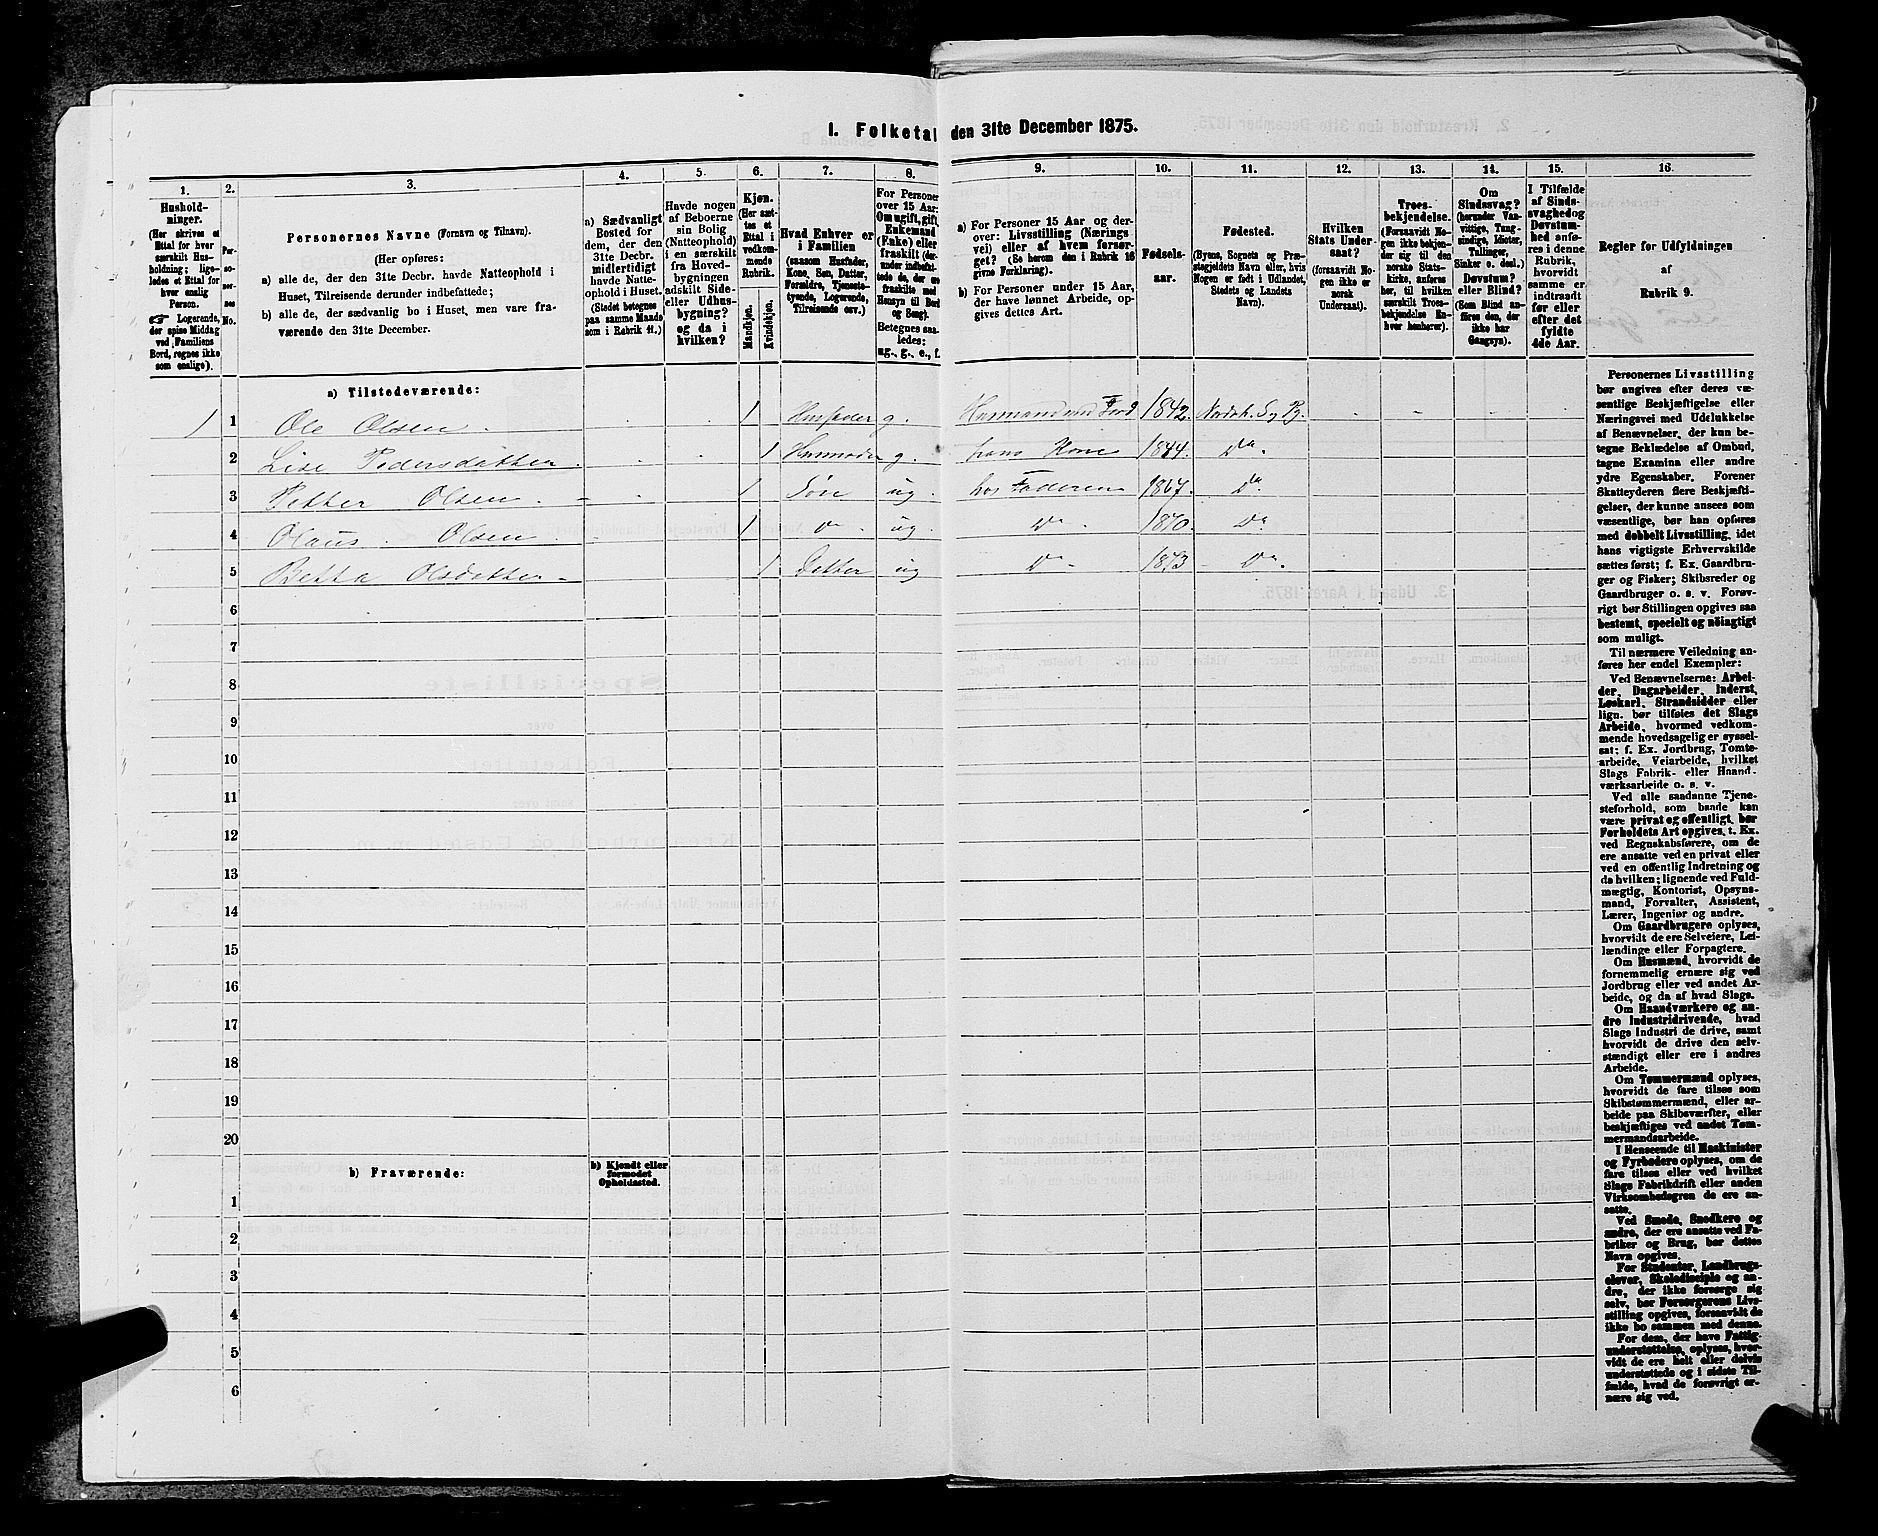 I. Folketal den 31te December 1875.
1.
Hushold-
ninger.
(Her skrives et
Ettal for hver
særskilt Hus-
holdning; lige-
ledes et Ettal for
hver enslig
Person.
☞ Logerende,
der spise Middag
ved Familiens
Bord, regnes ikke
som enslige).
2.
Per-
so-
ner-
nes
No.
3.
Personernes Navne (Fornavn og Tilnavn).
(Her opføres:
a) alle de, der den 31te Decbr. havde Natteophold i
Huset, Tilreisende derunder indbefattede;
b) alle de, der sædvanlig bo i Huset, men vare fra-
værende den 31te December.
4.
a) Sædvanligt
Bosted for
dem, der den
31te Decbr.
midlertidigt
havde Natte-
ophold i Huset.
(Stedet betegnes
paa samme Maade
som i Rubrik 11.)
5.
Havde nogen
af Beboerne
sin Bolig
(Natteophold)
i en særskilt
fra Hoved-
bygningen
adskilt Side-
eller Udhus-
bygning?
og da i
hvilken?
6.
Kjøn.
(Her sæt-
tes et
Ettal i
vedkom-
mende
Rubrik.
Mandkjøn.
Kvindekjøn.
7.
Hvad Enhver er
i Familien
(saasom Husfader,
Kone, Søn, Datter,
Forældre, Tjeneste-
tyende, Logerende,
Tilreisende osv.)
8.
For Personer
over 15 Aar:
Om ugift, gift,
Enkemand
(Enke) eller
fraskilt (der-
under indbefat-
tede de, der ere
fraskilte med
Hensyn til Bord
og Seng).
Betegnes saa-
ledes:
ug., g., e., f.
9.
a) For Personer 15 Aar og der-
over: Livsstilling (Nærings
vei) eller af hvem forsør-
get? (Se herom den i Rubrik 16
givne Forklaring).
b) For Personer under 15 Aar,
der have lønnet Arbeide, op-
gives dettes Art.
10.
Fødsels-
aar.
11.
Fødested.
(Byens, Sognets eller Præ-
stegjeldets Navn eller, hvis
Nogen er født i Udlandet,
Stedets og Landets
Navn).
12.
Hvilken
Stats Under-
saat?
(forsaavidt No-
gen ikke er
norsk
Undersaat).
13.
Troes-
bekjendelse.
(Forsaavidt No-
gen ikke bekjen-
der sig til den
norske Stats-
kirke, anføres
her, til hvilken
særskilt Troes-
bekjendelse En-
hver henhører).
14.
Om
Sindssvag?
(herunder Van-
vittige, Tung-
sindige, Idioter,
Tullinger,
Sinker o. desl.)
Døvstum?
eller Blind?
(Som Blind an-
føres den, der
ikke har
Gangsyn).
15.
I Tilfælde
af Sinds-
svaghed og
Døvstum-
hed anfø-
res i denne
Rubrik,
hvorvidt
samme er
indtraadt
før eller
efter det
fyldte
4de Aar.
16.
Regler for Udfyldningen
af
Rubrik 9.
a) Tilstedeværende:
1 1 Ole Olsen . 1 Husfader g. Husmand med Jord 1842. Nordsh. S og Pg.
2 Lise Pedersdatter 1 Husmoder g. hans Kone 1844. Do.
3 Petter Olsen . 1 Søn ug. hos Faderen 1867. Do.
4 Olaus Olsen . 1 do ug. Do 1870. Do
5 Betta Olsdatter 1 Datter ug Do 1873 Do.
6
7
8
9
10
11
12
13
14
15
16
17
18
19
20
b) Fraværende:
b) Kjendt eller
formodet
Opholdssted.
1
2
3
4
5
6
Personernes Livsstilling
bør angives efter deres væ-
sentlige Beskjæftigelse eller
Næringsvei med Udelukkelse
af Benævnelser, der kun be-
tegne Beklædelse af Ombud,
tagne Examina eller andre
ydre Egenskaber. Forener
Skatteyderen flere Beskjæfti-
gelser, der kunne ansees som
væsentlige, bør han opføres
med dobbelt Livsstilling, idet
hans vigtigste Erhvervskilde
sættes først; f. Ex. Gaardbru-
ger og Fisker; Skibsreder og
Gaardbruger o. s. v. Forøv-
rigt bør Stillingen opgives saa
bestemt, specielt og nöiagtigt
som muligt.
Til nærmere Veiledning an-
føres her endel Exempler:
Ved Benævnelserne: Arbei-
der, Dagarbeider, Inderst,
Løskarl, Strandsidder eller
lign. bør tilføies det Slags
Arbeide, hvormed vedkom-
mende hovedsagelig er syssel-
sat; f. Ex. Jordbrug, Tomte-
arbeide, Veiarbeide, hvilket
Slags Fabrik- eller Haand-
værksarbeide o. s. v.
Ved alle saadanne Tjene-
steforhold, som baade kan
være privat og offentligt, bør
Forholdets Art opgives, t. Ex.
ved Regnskabsførere, om de
ere ansatte ved en privat eller
ved en offentlig Indretning og
da hvilken; lignende ved Fuld-
mægtig, Kontorist, Opsyns-
mand, Forvalter, Assistent,
Lærer, Ingeniør og andre.
Om Gaardbrugere oplyses,
hvorvidt de ere Selveiere, Lei-
lændinge eller Forpagtere.
Om Husmænd, hvorvidt de
fornemmelig ernære sig ved
Jordbrug eller ved andet Ar-
beide, og da af hvad Slags.
Om Haandværkere og an-
dre Industridrivende, hvad
Slags Industri de drive, samt
hvorvidt de drive den selv-
stændigt eller ere i andres
Arbeide.
Om Tømmermænd oplyses,
hvorvidt de fare tilsøs som
Skibstømmermænd, eller ar-
beide paa Skibsværfter, eller
beskjæftiges ved andet Tøm-
mermandsarbeide.
I Henseende til Maskinister
og Fyrbødere oplyses, om de
fare tilsøs eller ved hvilket
Slags Fabrikdrift eller anden
Virksombedsgren de ere an-
satte.
Ved Smede, Snedkere og
andre, der ere ansatte ved Fa-
briker og Brug, bør dettes
Navn opgives.
For Studenter, Landbrugs-
elever, Skoledisciple og an-
dre, der ikke forsørge sig
selv, bør Forsørgerens Livs-
stilling opgives, forsaavidt de
ikke bo sammen med denne.
For dem, der have Fattig-
understøttelse, oplyses, hvor-
vidt de ere helt eller delvis
understøttede og i sidste Til-
fælde, hvad de forøvrigt er-
nære sig ved.